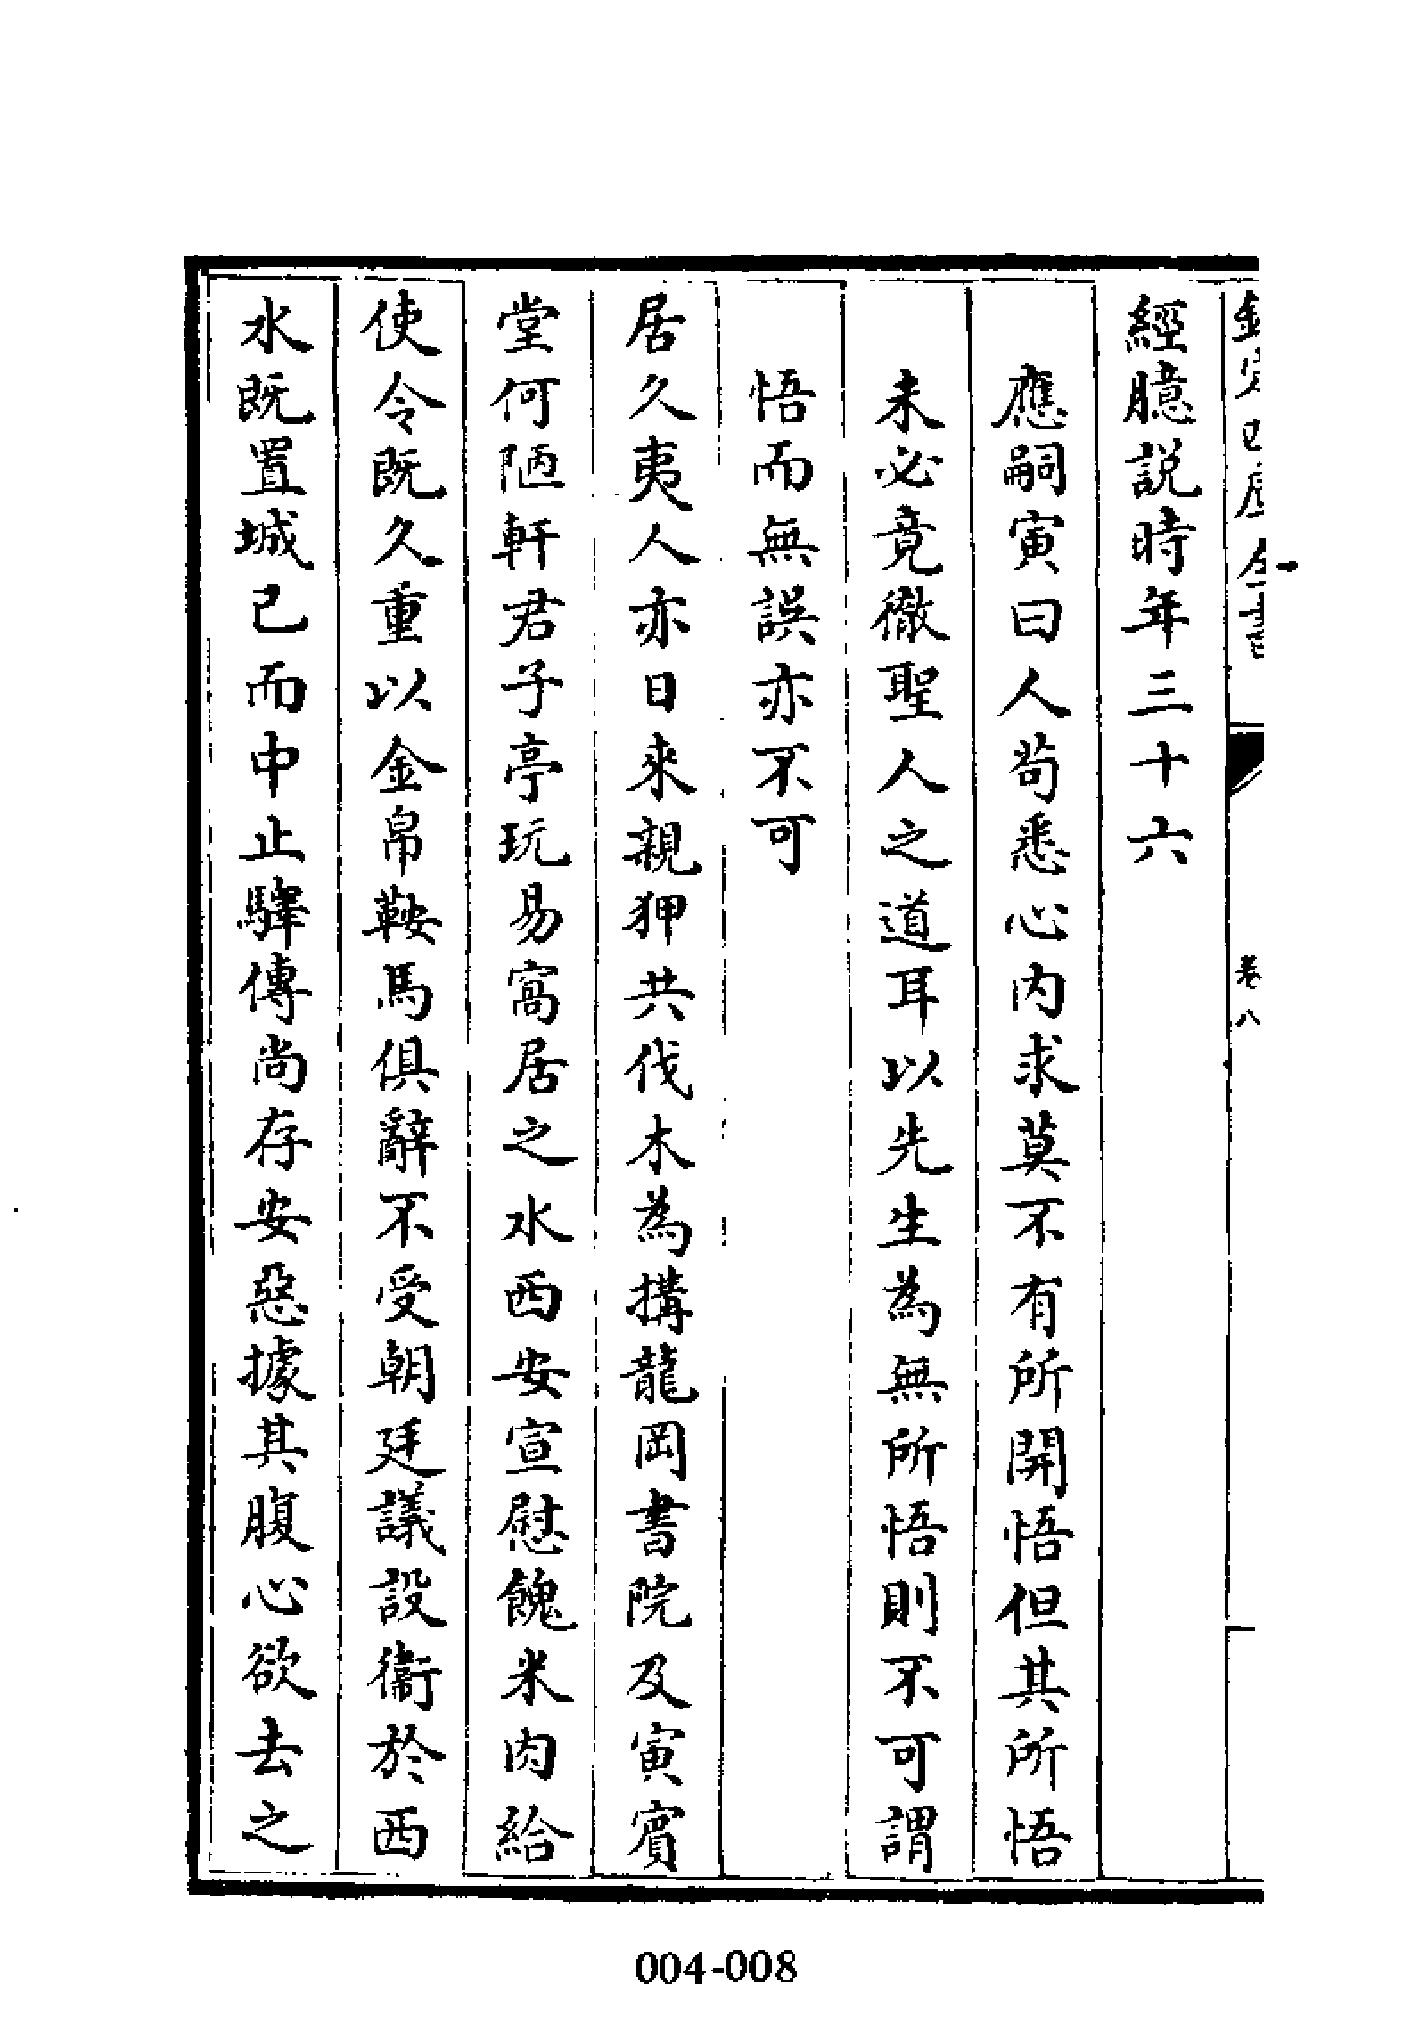 欽定四庫全書
卷八
經臆説時年三十六
應嗣寅曰人茍悉心内求莫不有所開悟但其所悟
未必竟徹聖人之道耳以先生為無所悟則不可謂
悟而無誤亦不可
居久夷人亦日來親狎共伐木為搆龍岡書院及寅賓
堂何陋軒君子亭玩易窩居之水西安宣慰餽米肉給
使令既久重以金帛鞍馬俱辭不受朝廷議設衞於西
水既置城已而中止驛傳尚存安惡據其腹心欲去之
004-008